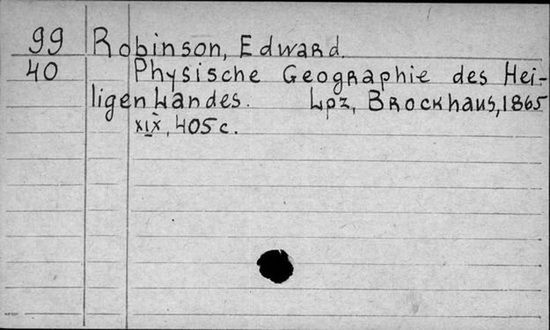 99 Robinson, Edward.
40 Physische Geographie des Hei-
ligen Landes. Lpz, Brockhaus, 1865
XIX, 405 c.